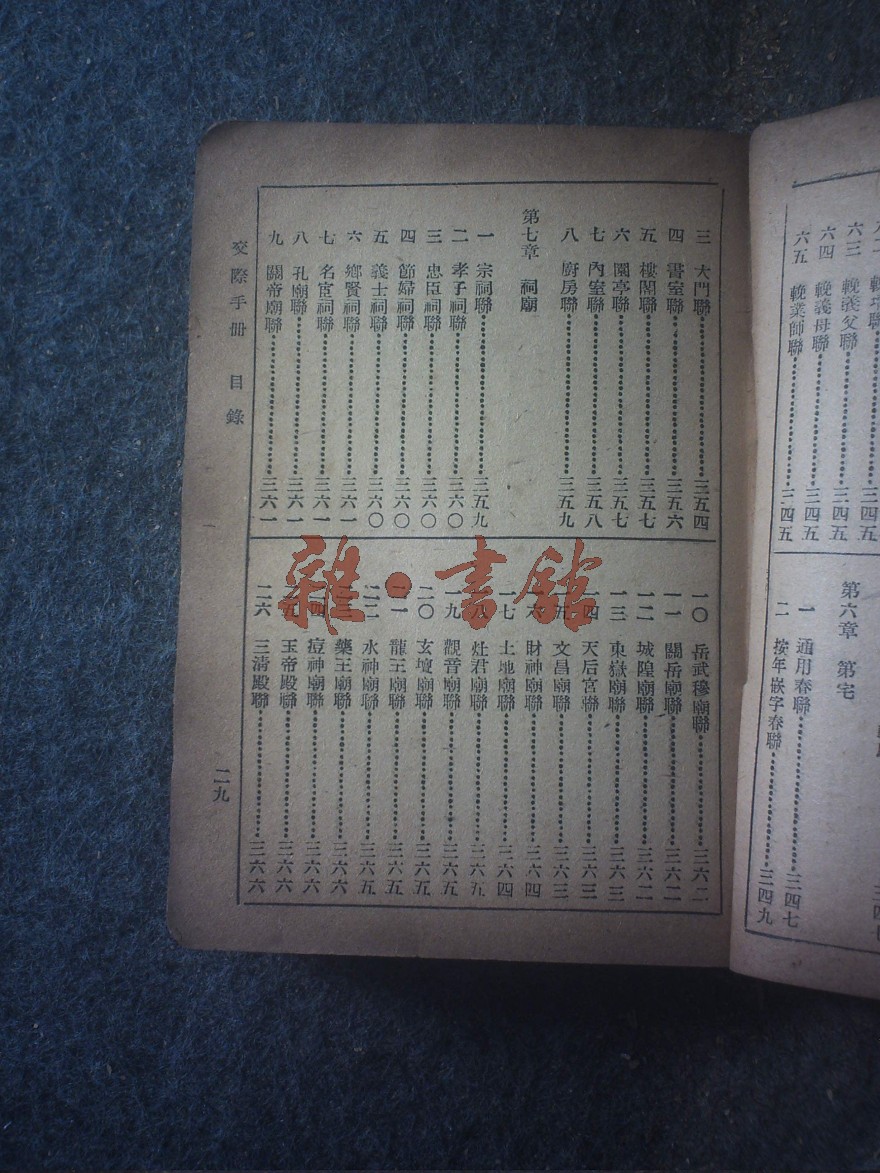 六三 輓義父聯……三四五
六四 輓義母聯……三四五
六五 輓業師聯……三四五
第六章 第宅
一 通用春聯……三四七
二 按年嵌字春聯……三四九
三 大門聯……三五四
四 書室聯……三五六
五 樓閣聯……三五七
六 園亭聯……三五七
七 內室聯……三五八
八 廚房聯……三五九
第七章 祠廟
一 宗祠聯……三五九
二 孝子祠聯……三六〇
三 忠臣祠聯……三六〇
四 節婦祠聯……三六〇
五 義士祠聯……三六〇
六 鄉賢祠聯……三六一
七 名宦祠聯……三六一
八 孔廟聯……三六一
九 關帝廟聯……三六一
一〇 岳武穆廟聯……三六二
一一 關岳廟聯……三六二
一二 城隍廟聯……三六二
一三 東嶽廟聯……三六三
一四 天后宮聯……三六三
一五 文昌廟聯……三六三
一六 財神廟聯……三六四
一七 土地廟聯……三六四
一八 灶君廟聯……三六五
一九 觀音廟聯……三六五
二〇 玄壇廟聯……三六五
二一 龍王廟聯……三六五
二二 水神廟聯……三六五
二三 藥王廟聯……三六六
二四 痘神廟聯……三六六
二五 玉帝殿聯……三六六
二六 三清殿聯……三六六
交際手册 目錄
二九
雜·書館